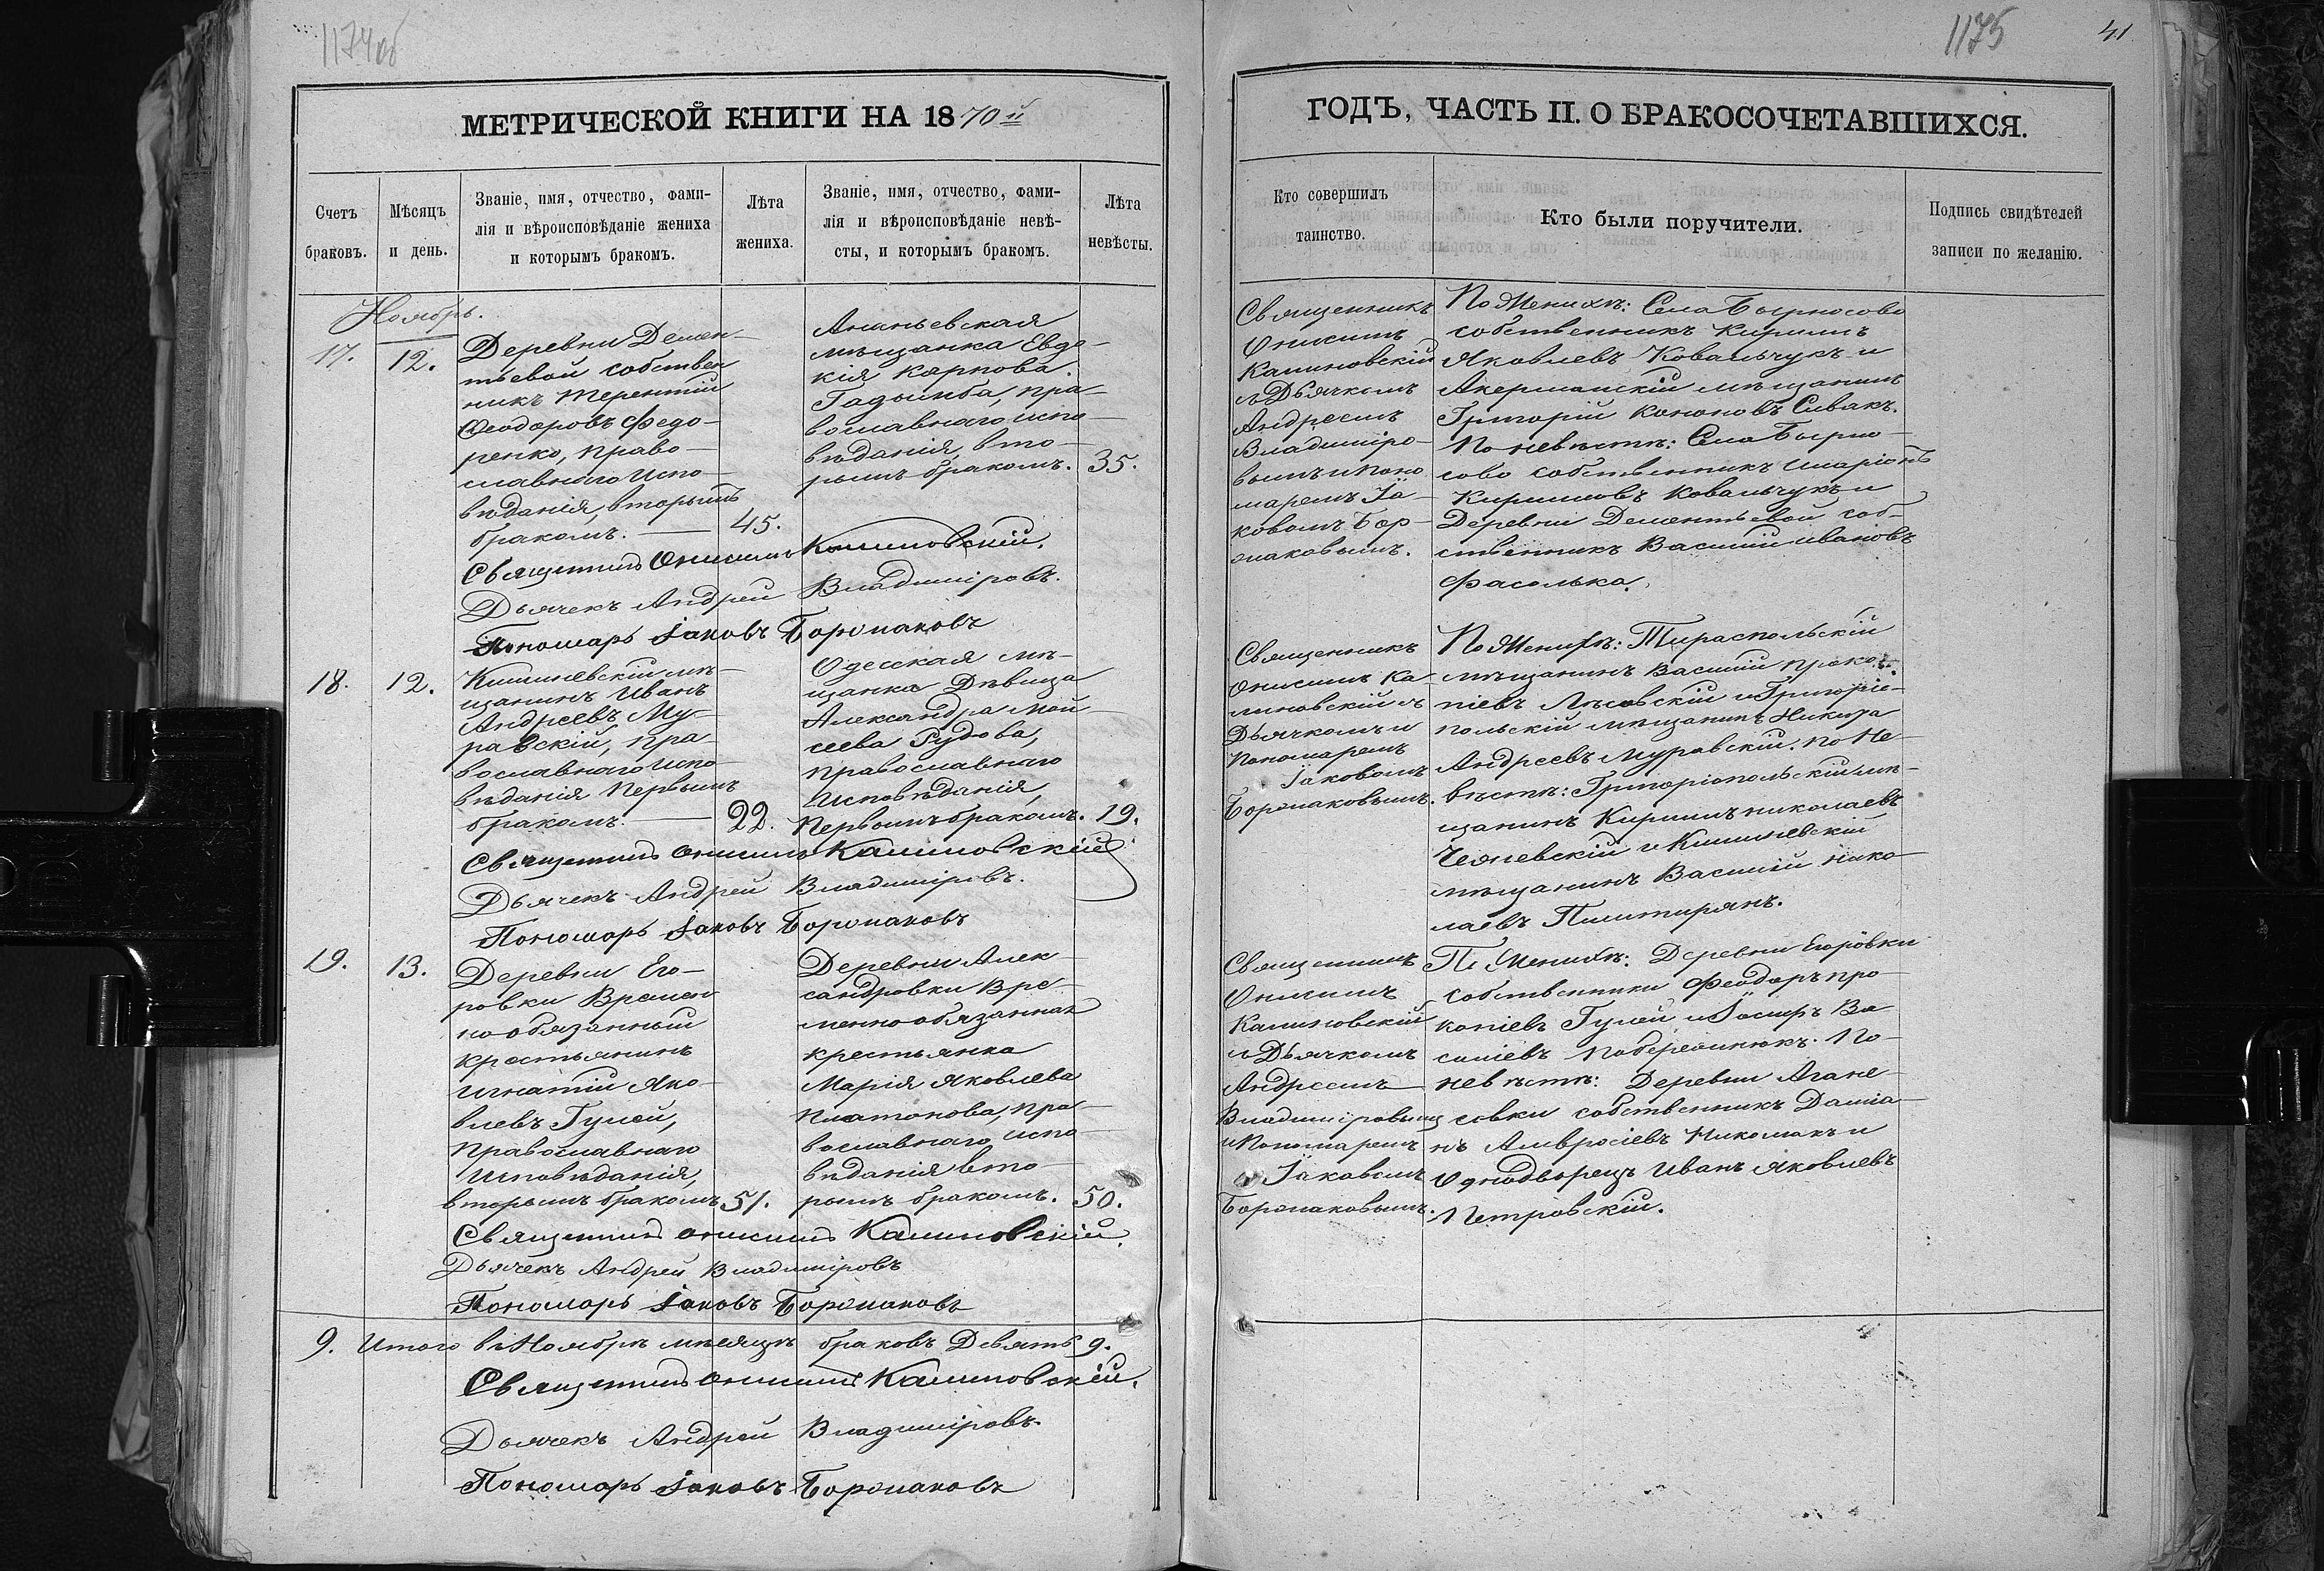 1174об
МЕТРИЧЕСКОЙ КНИГИ НА 1870й
Счетъ браковъ.
Мѣсяцъ и день.
Званіе, имя, отчество, фами-
лія и вѣроисповѣданіе жениха
и которымъ бракомъ.
Лѣта жениха.
Званіе, имя, отчество, фами-
лія и вѣроисповѣданіе невѣ-
сты, и которымъ бракомъ.
Лѣта невѣсты.
Ноябрь.
17.
12.
Деревни Демен-
тьевой собствен
никъ Терентій
Ѳеодоровъ Федо-
ренко, право-
славнаго испо-
вѣданія, вторымъ
бракомъ.
45.
Ананьевская
мѣщанка Евдо-
кія Карпова
православнаго испо-
вѣданія, вто-
рымъ бракомъ.
35.
Священникъ Онисимъ Калиновскій.
Дьячекъ Андрей Владиміровъ.
Пономарь Іаковъ
18.
12.
Кишиневскій мѣ-
щанинъ Иванъ
Андреевъ Му-
равскій, пра-
вославнаго испо-
вѣданія первымъ
бракомъ.
22.
Одесская мѣ-
щанка Дѣвица
Александра Мой
сеева
православнаго
исповѣданія,
первымъ бракомъ.
19.
Священникъ Онисимъ Калиновскій
Дьячекъ Андрей Владиміровъ.
Пономарь Іаковъ
19.
13.
Деревни Его-
ровки Времен
но обязанный
крестьянинъ
Игнатій Яко-
влевъ Гулей,
православнаго
исповѣданія,
вторымъ бракомъ
51.
Деревни Алек-
сандровки Вре-
менно обязанная
крестьянка
Марія Яковлева
Платонова, пра-
вославнаго испо-
вѣданія вто-
рымъ бракомъ.
50.
Священникъ Онисимъ Калиновскій.
Дьячекъ Андрей Владиміровъ
Пономарь Іаковъ
9. Итого въ Ноябрѣ мѣсяцѣ браковъ Девять 9.
Священникъ Онисимъ Калиновскій.
Дьячекъ Андрей Владиміровъ.
Пономарь Іаковъ
1175
41
ГОДЪ, ЧАСТЬ II. О БРАКОСОЧЕТАВШИХСЯ.
Кто совершилъ таинство.
Кто были поручители.
Подпись свидѣтелей
записи по желанію.
Священникъ
Онисимъ
Калиновскій
съ Дьячкомъ
Андреемъ
Владиміро-
вымъ и Поно
маремъ Іа-
ковомъ
По Женихѣ: Села
собственникъ Кирилъ
Яковлевъ Ковальчукъ и
Акерманскій мѣщанинъ
Григорій Кононовъ Сивакъ.
По невѣстѣ: Села
собственникъ Иларіонъ
Кирилловъ Ковальчукъ и
Деревни Дементьевой соб-
ственникъ Василій Ивановъ
Фасолька.
Священникъ
Онисимъ Ка-
линовскій съ
Дьячкомъ и
Пономаремъ
Іаковомъ
По Женихѣ: Тираспольскій
мѣщанинъ Василій Проко-
піевъ и Григоріо-
польскій мѣщанинъ
Андреевъ Муравскій. По Не-
вѣстѣ: Григоріопольскій мѣ-
щанинъ Кирилъ Николаевъ
и Кишиневскій
мѣщанинъ Василій Нико-
лаевъ
Священникъ
Онисимъ
Калиновскій
съ Дьячкомъ
Андреемъ
Владиміровымъ
и Пономаремъ
Іаковомъ
По Женихѣ: Деревни Егоровки
собственники Ѳеодоръ Про-
копіевъ Гулей и Іосифъ Ва
силіевъ По-
невѣстѣ: Деревни
собственникъ Даміа-
нъ Амвросіевъ и
Однодворецъ Иванъ Яковлевъ
Петровскій.